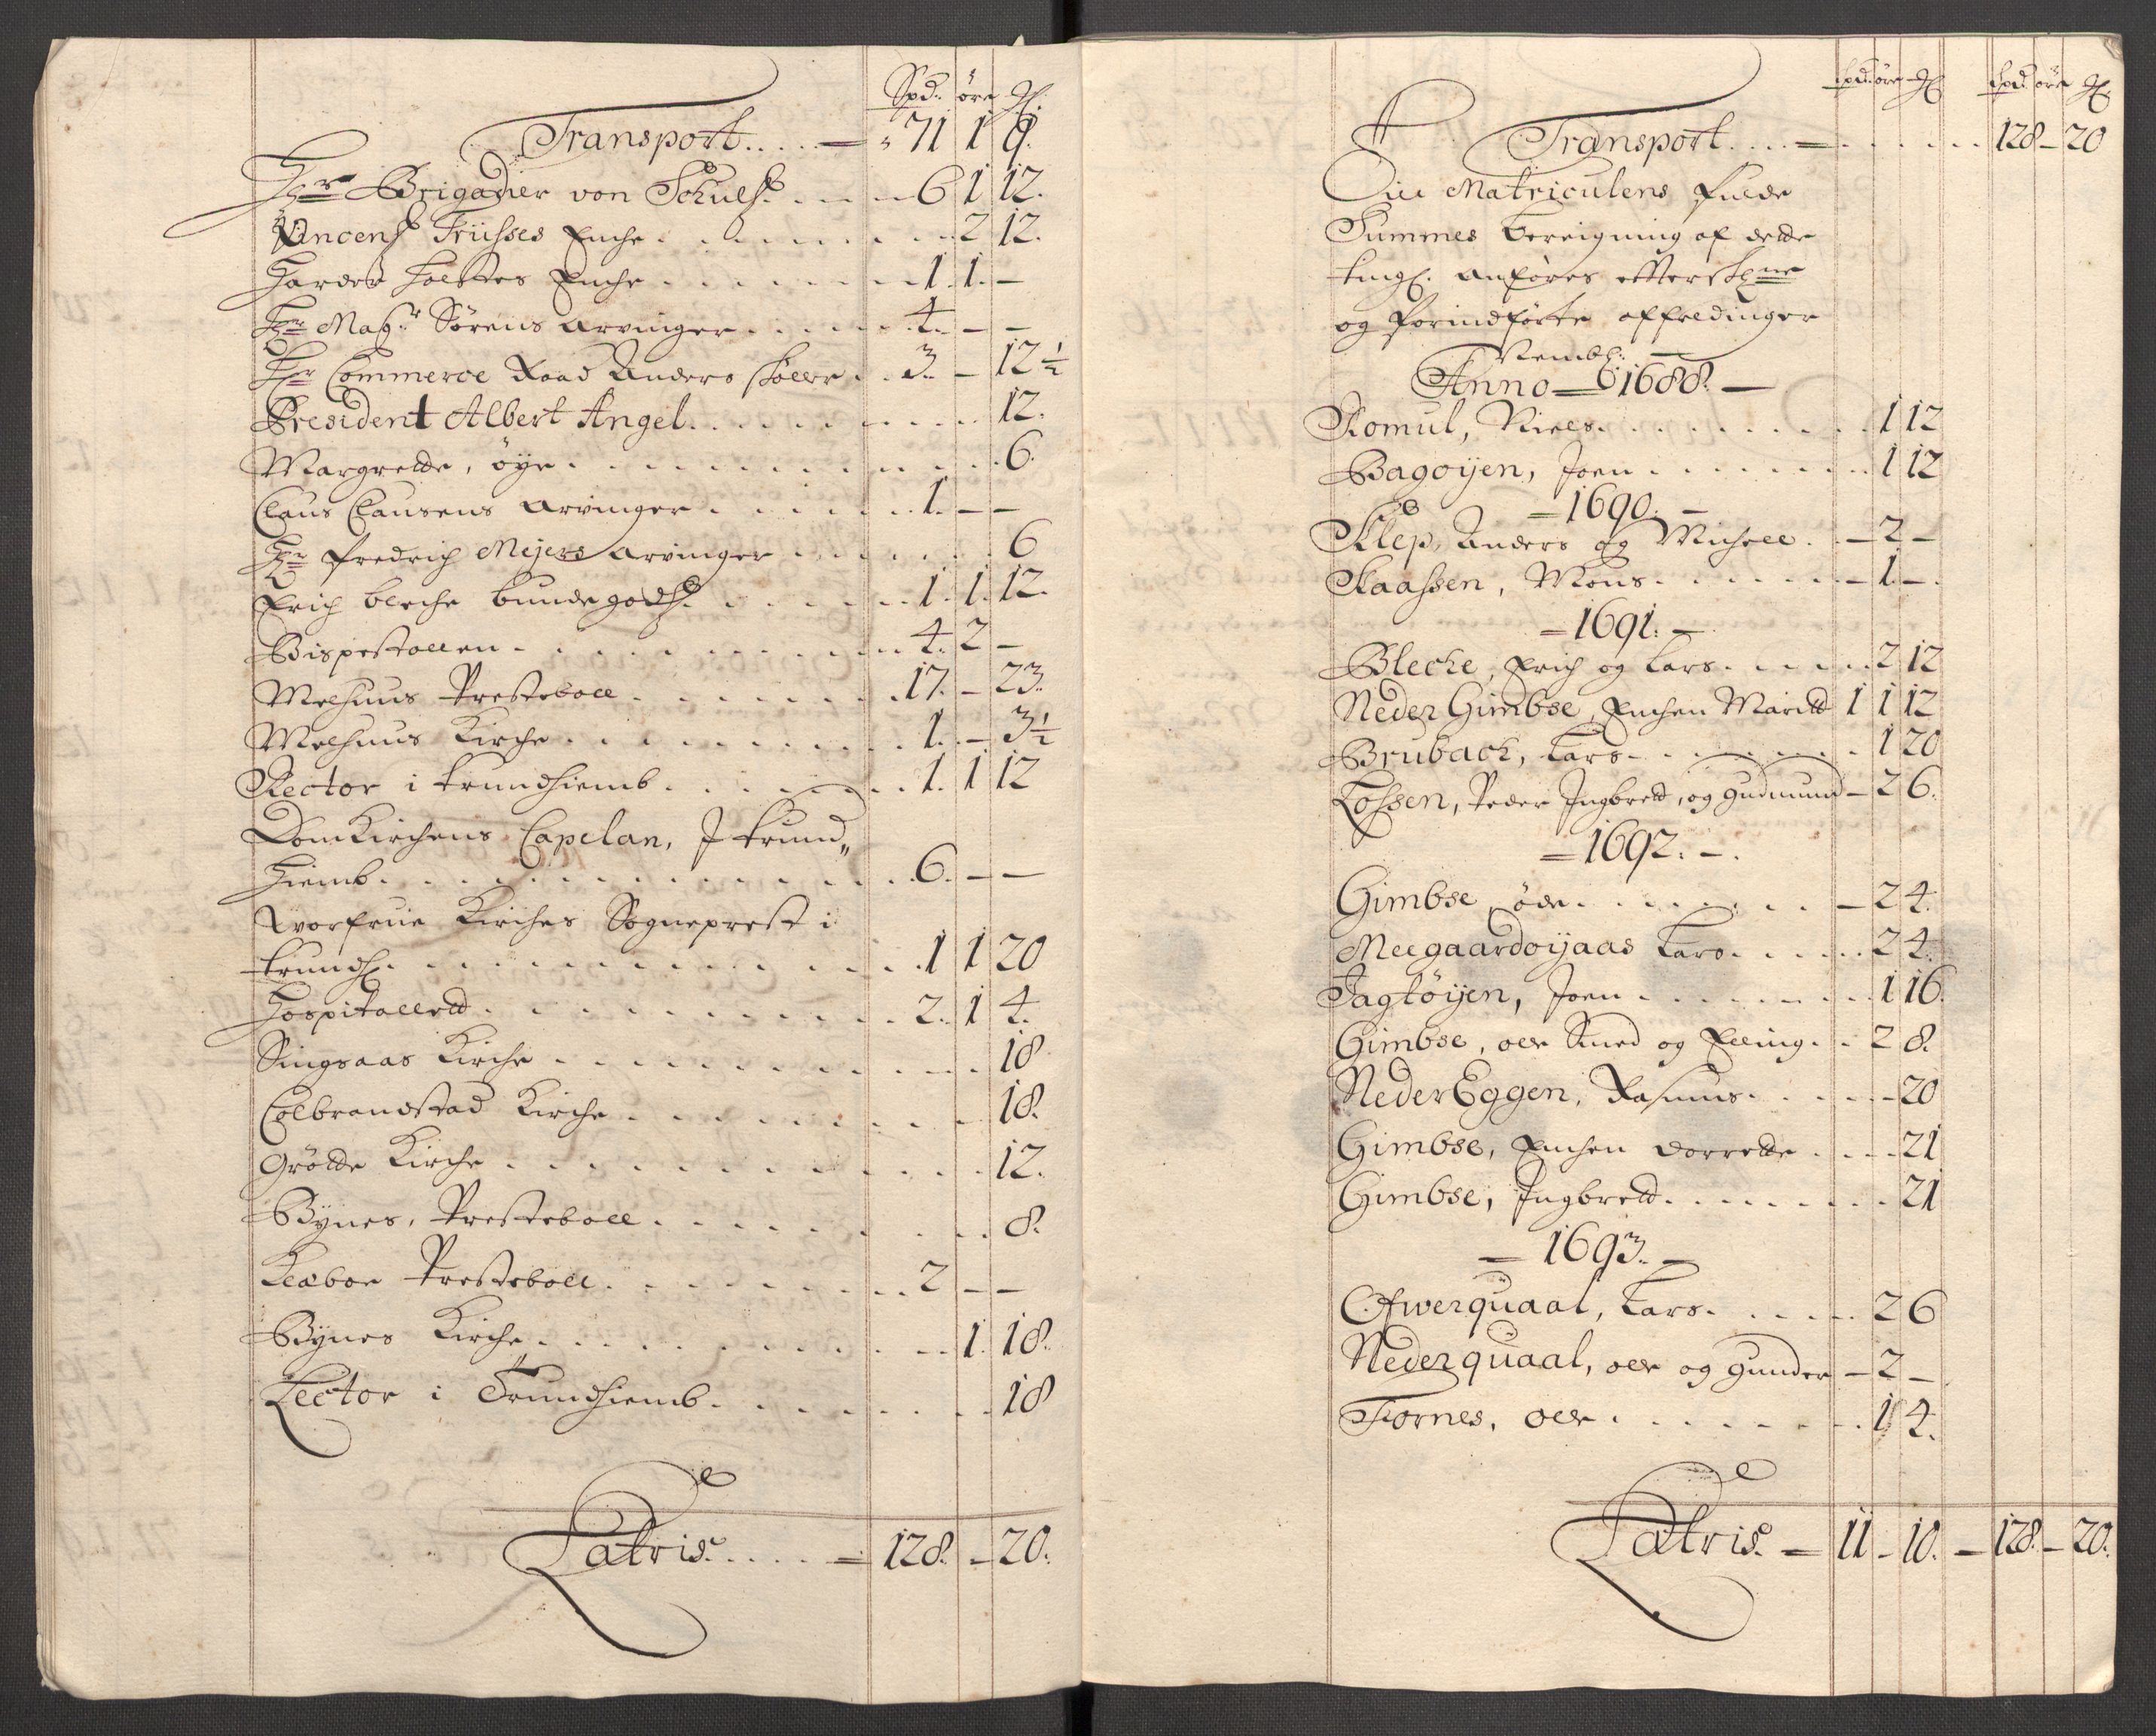 Spd. øre
Transport ..... 71 1 9.
Hr Brigadier von Schults .... 6 1 12.
Vincens Friisses Enche ........ 2 12.
Enche ...... 1. 1. –
Hr Magr Sørens Arvinger ..... 4. – –
Hr Commerce Raad Anders . . 3. – 12½
President Albert Angel ......... 12.
Margrette, øye ............ 6.
Claus Clausens Arvinger ...... 1. – –
Hr fredrich Meijers Arvinger ...... 6
Erich bleche bundegods ..... 1. 1. 12.
Bispestollen ........... 4. 2 –
Melhuus Presteboll ........ 17. – 23.
Melhuus Kirche .......... 1. – 3½
Rector i trundhiemb ....... 1. 1 12
DomKirchens Capelan, I trund„
hiemb ............. 6. – –
Worfrue Kirches Sogneprest i
trundh ............ 1 1 20
Hospitallett .......... 2. 1 4.
Singsaas Kirche .......... 18
Colbrandstad Kirche ........ 18.
Grötte Kirche ........... 12.
Bynes, Presteboll ........ 8.
Kleboe Presteboll ........ 2 – –
Bynes Kirche .......... 1. 18.
Lector i Trundhiemb ....... 18
Latris ..... 128. – 20.
Spd. øre Spd. øre
Transport ....... 128 – 20
Til Matriculens fulde
Summes berigning af dette
tingl. anføres effterskne
og forindførte affeldinger
Nembl.
Anno 1688.
Romul, Niels ........ 1 12
Bagøyen, Joen ....... 1 12
– 1690. –
Klep, Anders og Michell . – 2 –
Kaassen, Mons ...... – 1. –
– 1691. –
Bleche, Erich og Lars ..... 2 12
Neder Gimbse, Enchen Maritt 1 1 12
Brubach, Lars ....... 1 20
Lossen, Peder Ingbrett, og gudmund – 2 6.
– 1692. –
Gimbse øde ....... – 2 4.
Meegaardøyaas Lars ..... 2 4.
Jagtöyen, Joen ........ 1 16.
Gimbse, olle Smed og Elling . . 2 8.
Neder Eggen, Rasmus ..... – 20
Gimbse, Enchen Dorrette .... 21
Gimbse, Ingbrett ........ 21
– 1693. –
Ofwerquaal, Lars ..... 2 6
Nederquaal, olle og gunder – 2 –
Fornes, olle ........ 1 4.
Latris – 11 – 10. – 128. – 20.